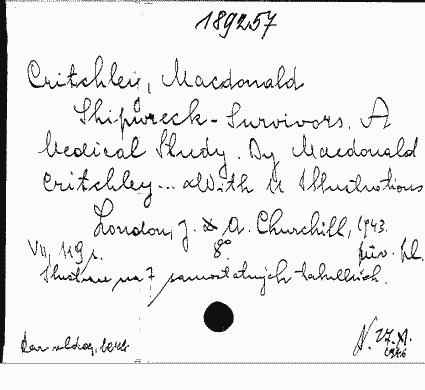 189257
Critchley, Macdonald
Shipwreck-Survivors. A
Medical Study. By Macdonald
Critchley... With 11 Illustrations
London, J. & A. Churchill, 1943.
VII, 119 s. 8° pův. pl.
Illustrace na 7 samostatných tabulkách.
N. 27.XI.
1946